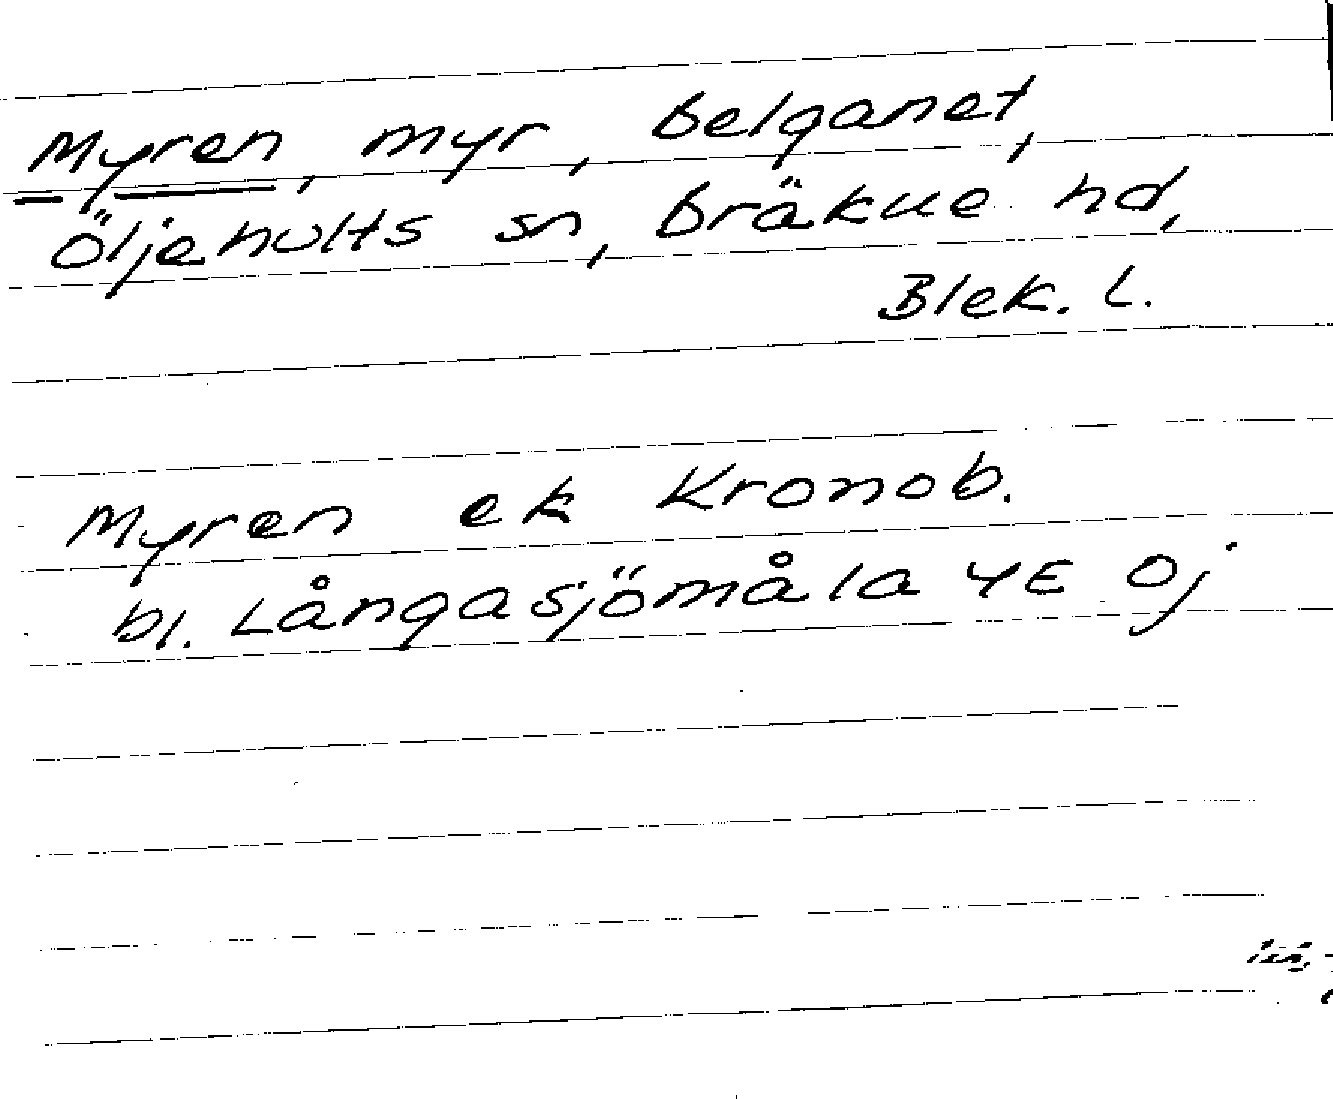 Myren, myr, Belganet,
Öljehults sn, Bräkne hd,
Blek. L.
Myren ek Kronob.
bl. Långasjömåla 4E Oj